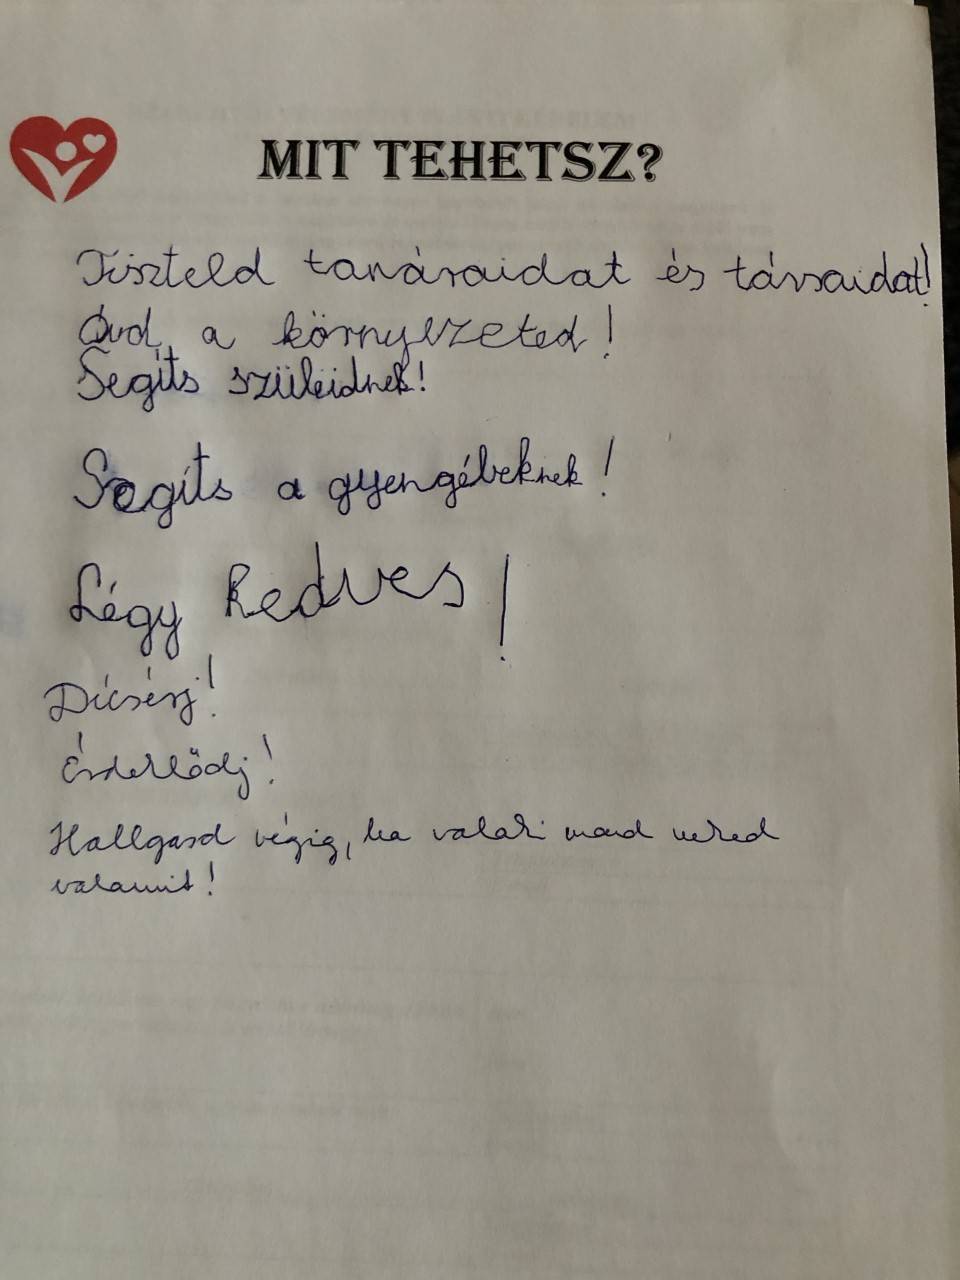 MIT TEHETSZ?
Tiszteld tanáraidat és társaidat!
Óvd a környezeted!
Segíts szüleidnek!
Segíts a gyengébeknek!
Légy kedves!
Dícsérj!
Érdeklődj!
Hallgasd végig, ha valaki mond neked
valamit!